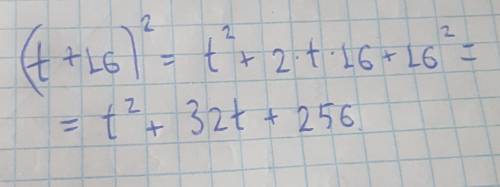 (t+16)² = t² + 2·t·16 + 16² =
= t² + 32t + 256.